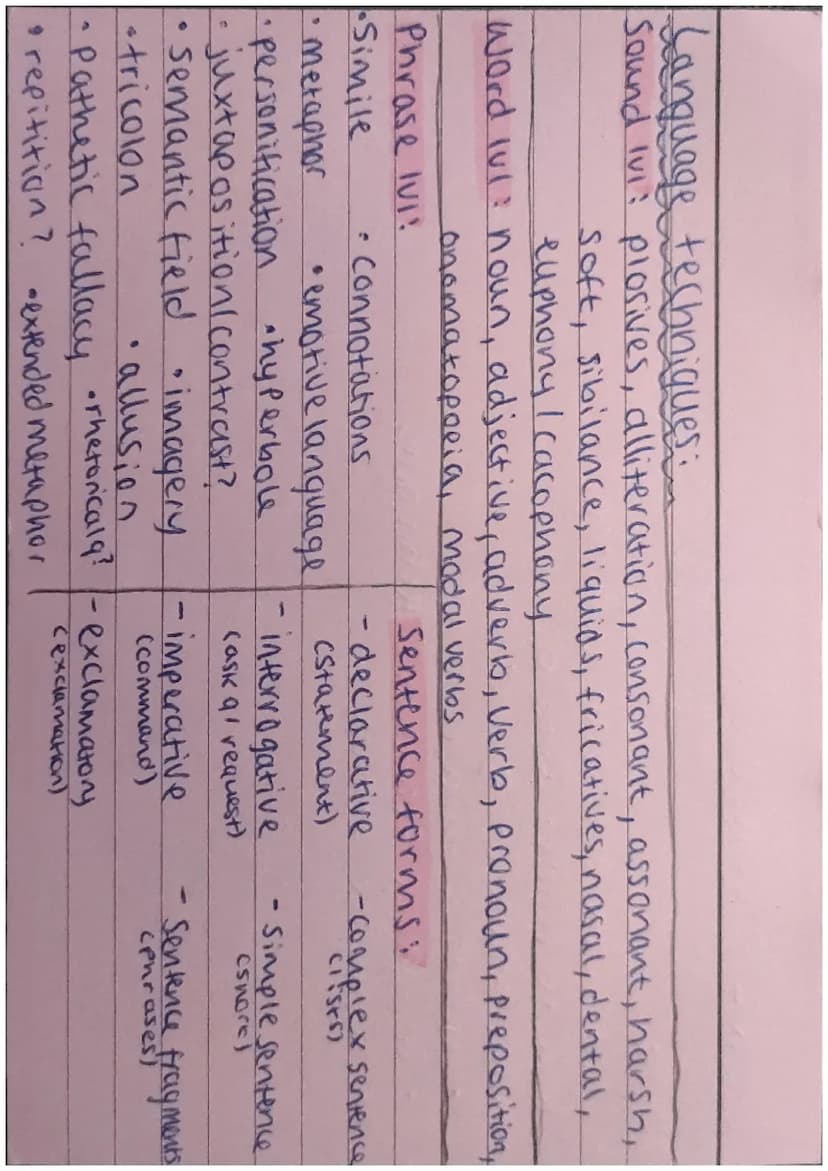 Language techniques:
Sound lvl: plosives, alliteration, consonant, assonant, harsh,
soft, sibilance, liquids, fricatives, nasal, dental,
euphony/cacophony
Word lvl: noun, adjective, adverb, verb, pronoun, preposition,
onomatopoeia, modal verbs
Phrase lvl:
• Simile • connotations
• metaphor • emotive language
• personification • hyperbole
• juxtaposition/contrast?
• semantic field • imagery
• tricolon • allusion
• pathetic fallacy • rhetorical q?
• repitition? • extended metaphor
Sentence forms:
- declarative - complex sentence
(statement) (lists)
- interrogative - simple sentence
(ask q/request) (short)
- imperative - sentence fragments
(command) (phrases)
- exclamatory
(exclamation)